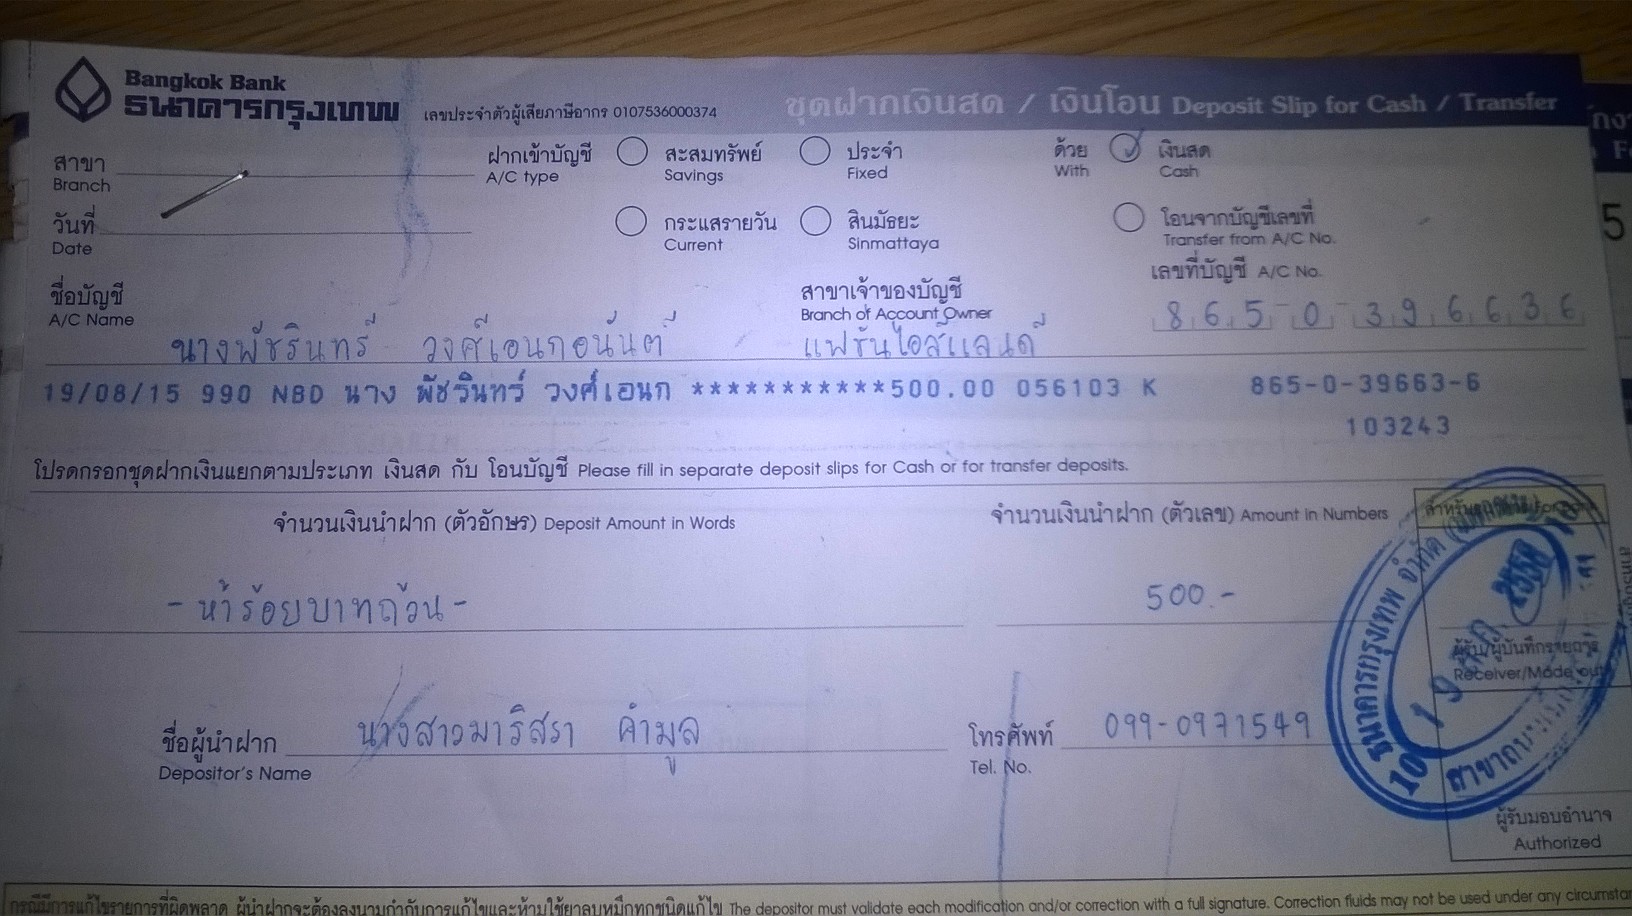 Bangkok Bank
ธนาคารกรุงเทพ
เลขประจำตัวผู้เสียภาษีอากร 0107536000374
ชุดฝากเงินสด / เงินโอน Deposit Slip for Cash / Transfer
สาขา
Branch
ฝากเข้าบัญชี
A/C type
สะสมทรัพย์
Savings
ประจำ
Fixed
ด้วย
With
เงินสด
Cash
วันที่
Date
กระแสรายวัน
Current
สินมัธยะ
Sinmattaya
โอนจากบัญชีเลขที่
Transfer from A/C No.
5
ชื่อบัญชี
A/C Name
สาขาเจ้าของบัญชี
Branch of Account Owner
เลขที่บัญชี A/C No.
865-0-396636
นางพัชรินทร์ วงศ์เอนกอนันต์
แฟชั่นไอส์แลนด์
19/08/15 990 NBD นาง พัชรินทร์ วงศ์เอนก ***********500.00 056103 K 865-0-39663-6
103243
โปรดกรอกชุดฝากเงินแยกตามประเภท เงินสด กับ โอนบัญชี Please fill in separate deposit slips for Cash or for transfer deposits.
จำนวนเงินนำฝาก (ตัวอักษร) Deposit Amount in Words
จำนวนเงินนำฝาก (ตัวเลข) Amount in Numbers
-ห้าร้อยบาทถ้วน-
500.-
ธนาคารกรุงเทพ จำกัด
ผู้รับ/ผู้บันทึกรายการ
Receiver/Made out
ชื่อผู้นำฝาก
Depositor's Name
นางสาวมาริสรา คำมูล
โทรศัพท์
Tel. No.
099-0971549
ผู้รับมอบอำนาจ
Authorized
กรณีมีการแก้ไขรายการที่ผิดพลาด ผู้นำฝากจะต้องลงนามกำกับการแก้ไขและห้ามใช้ยาลบหมึกทุกชนิดแก้ไข The depositor must validate each modification and/or correction with a full signature. Correction fluids may not be used under any